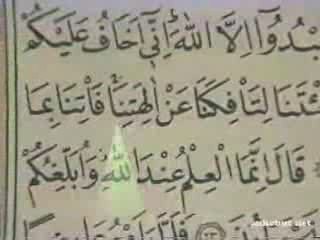 تَعْبُدُوٓا۟ اِلَّا اللّٰهَ ؕ اِنِّىٓ اَخَافُ عَلَيْكُمْ
اَجِئْتَنَا لِتَاْفِكَنَا عَنْ اٰلِهَتِنَا ۚ فَاْتِنَا بِمَا
قَالَ اِنَّمَا الْعِلْمُ عِنْدَ اللّٰهِ وَاُبَلِّغُكُمْ
فَلَمَّا رَاَوْهُ عَارِضًا